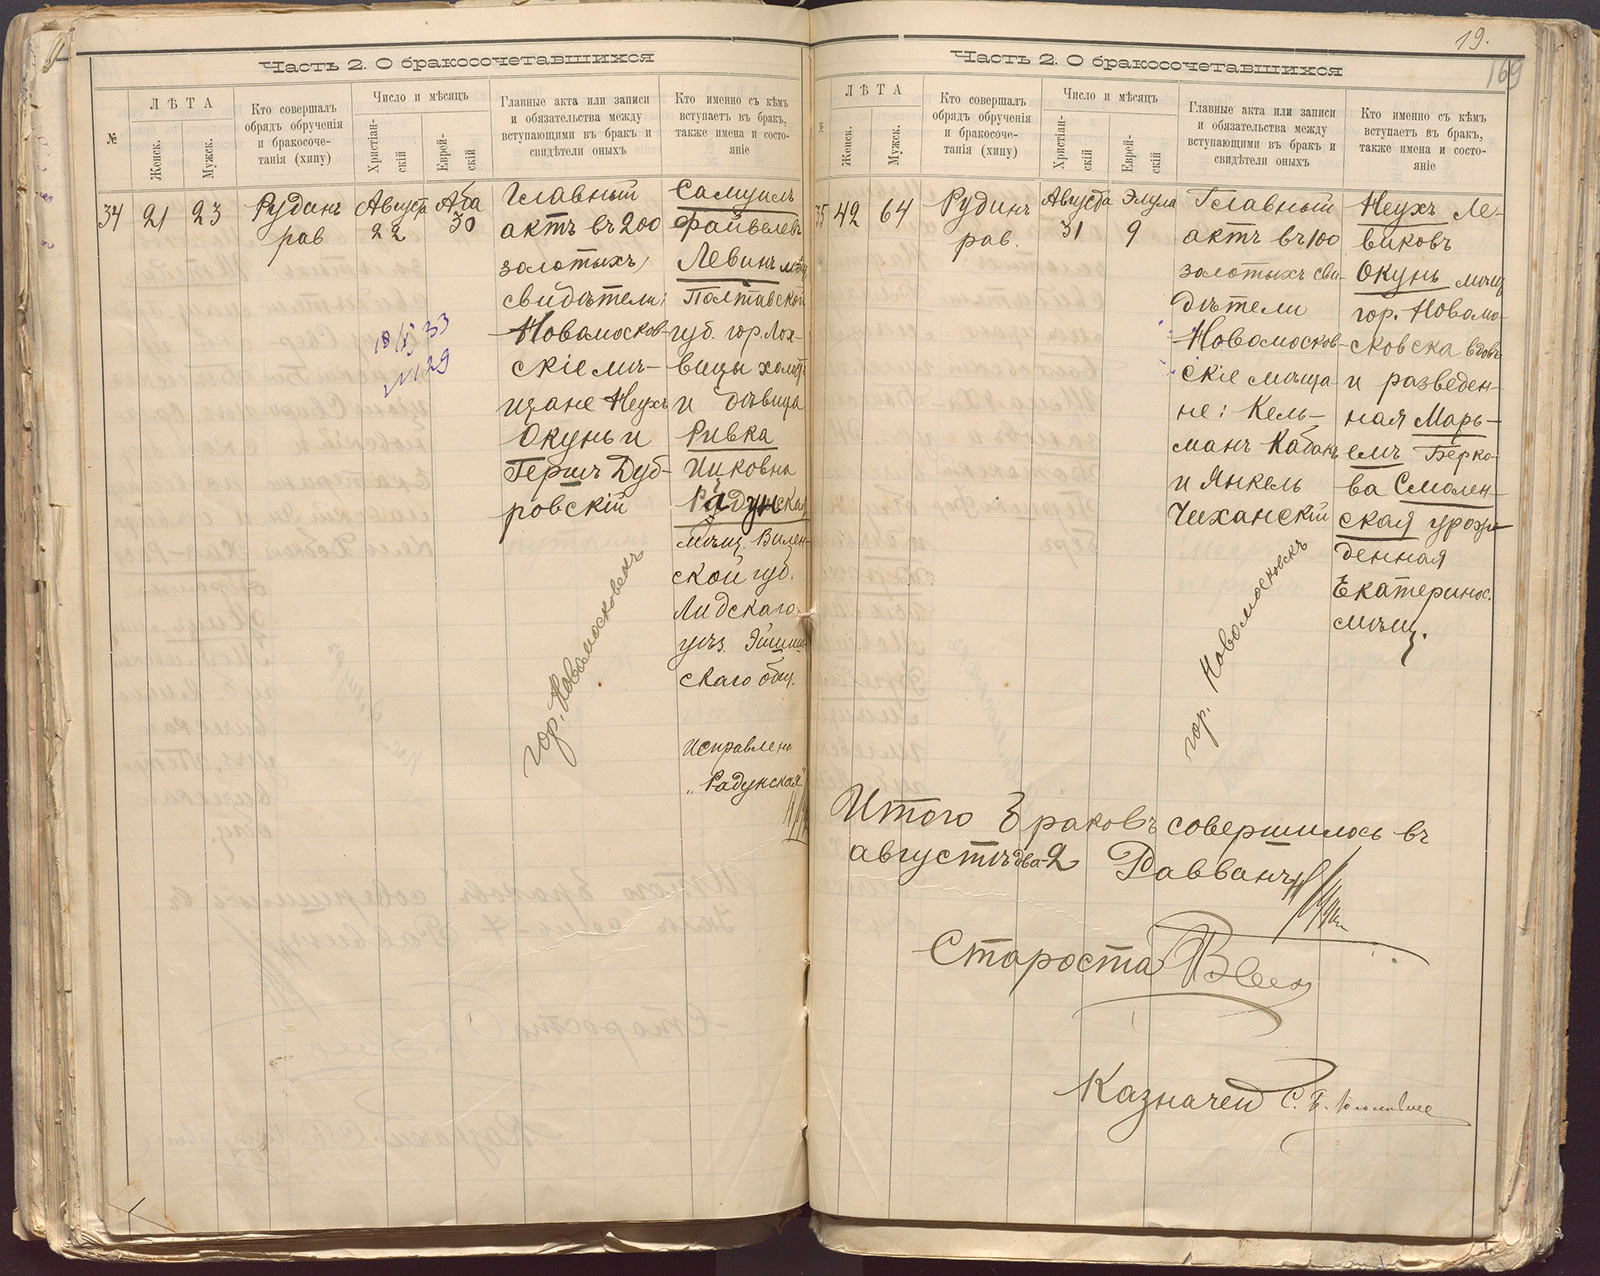 Часть 2. О бракосочетавшихся
№
ЛѢТА
Женск.
Мужск.
Кто совершалъ
обрядъ обрученія
и бракосоче-
танія (хипу)
Число и мѣсяцъ
Христіан-
скій
Еврей-
скій
Главные акта или записи
и обязательства между
вступающими въ бракъ и
свидѣтели оныхъ
Кто именно съ кѣмъ
вступаетъ въ бракъ,
также имена и состо-
яніе
34
21
23
Рудинъ
рав
Августа
22
Аба
30
18
33
№129
Главный
актъ въ 200
золотыхъ,
свидѣтели:
Новомосков-
скіе мѣ-
щане Неухъ
Окунь и
Гершъ Дуб-
ровскій
гор. Новомосковскъ
Самуилъ
Файвелевъ
Левинъ мѣщ
Полтавской
губ. гор. Лох-
вицы холост
и дѣвица
Ривка
Ицковна
Радунская
мѣщ. Вилен-
ской губ.
Лидскаго
уѣз. Эйшиш-
скаго общ.
Исправлено
„Радунская"
19.
169
Часть 2. О бракосочетавшихся
№
ЛѢТА
Женск.
Мужск.
Кто совершалъ
обрядъ обрученія
и бракосоче-
танія (хипу)
Число и мѣсяцъ
Христіан-
скій
Еврей-
скій
Главные акта или записи
и обязательства между
вступающими въ бракъ и
свидѣтели оныхъ
Кто именно съ кѣмъ
вступаетъ въ бракъ,
также имена и состо-
яніе
35
42
64
Рудинъ
рав.
Августа
31
Элула
9
Главный
актъ въ 100
золотыхъ сви-
дѣтели
Новомосков-
скіе мѣща-
не: Кель-
манъ Кабакъ
и Янкель
Чиханскій
гор. Новомосковскъ
Неухъ Ле-
виковъ
Окунь мѣщ
гор. Новомо-
сковска вдов
и разведен-
ная Марь-
емъ Берко-
ва Смолен-
ская урож-
денная
Екатеринос.
мѣщ.
Итого браковъ совершилось въ
августѣ два-2 Раввинъ
Староста
Казначей С. Б.